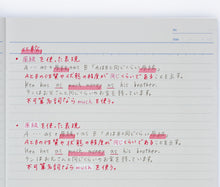 ・原級を使った表現
A … as + 原級 + as B「AはBと同じくらい
AとBの性質や状態の程度が同じくらいであることを表す。
Ken has as much money as his brother.
ケンはお兄さんと同じくらいのお金を持っています。
不可算名詞なら much を使う。
・原級を使った表現
A … as + 原級 + as B「AはBと同じくらい
AとBの性質や状態の程度が同じくらいであることを表す。
Ken has as much money as his brother.
ケンはお兄さんと同じくらいのお金を持っています。
不可算名詞なら much を使う。